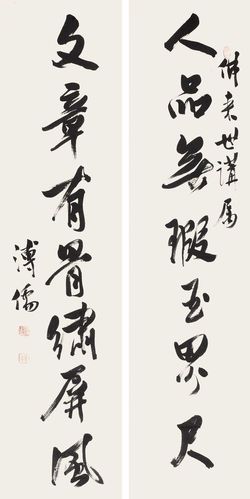 人品無瑕玉界尺
世講屬
文章有骨繡屏風
溥儒